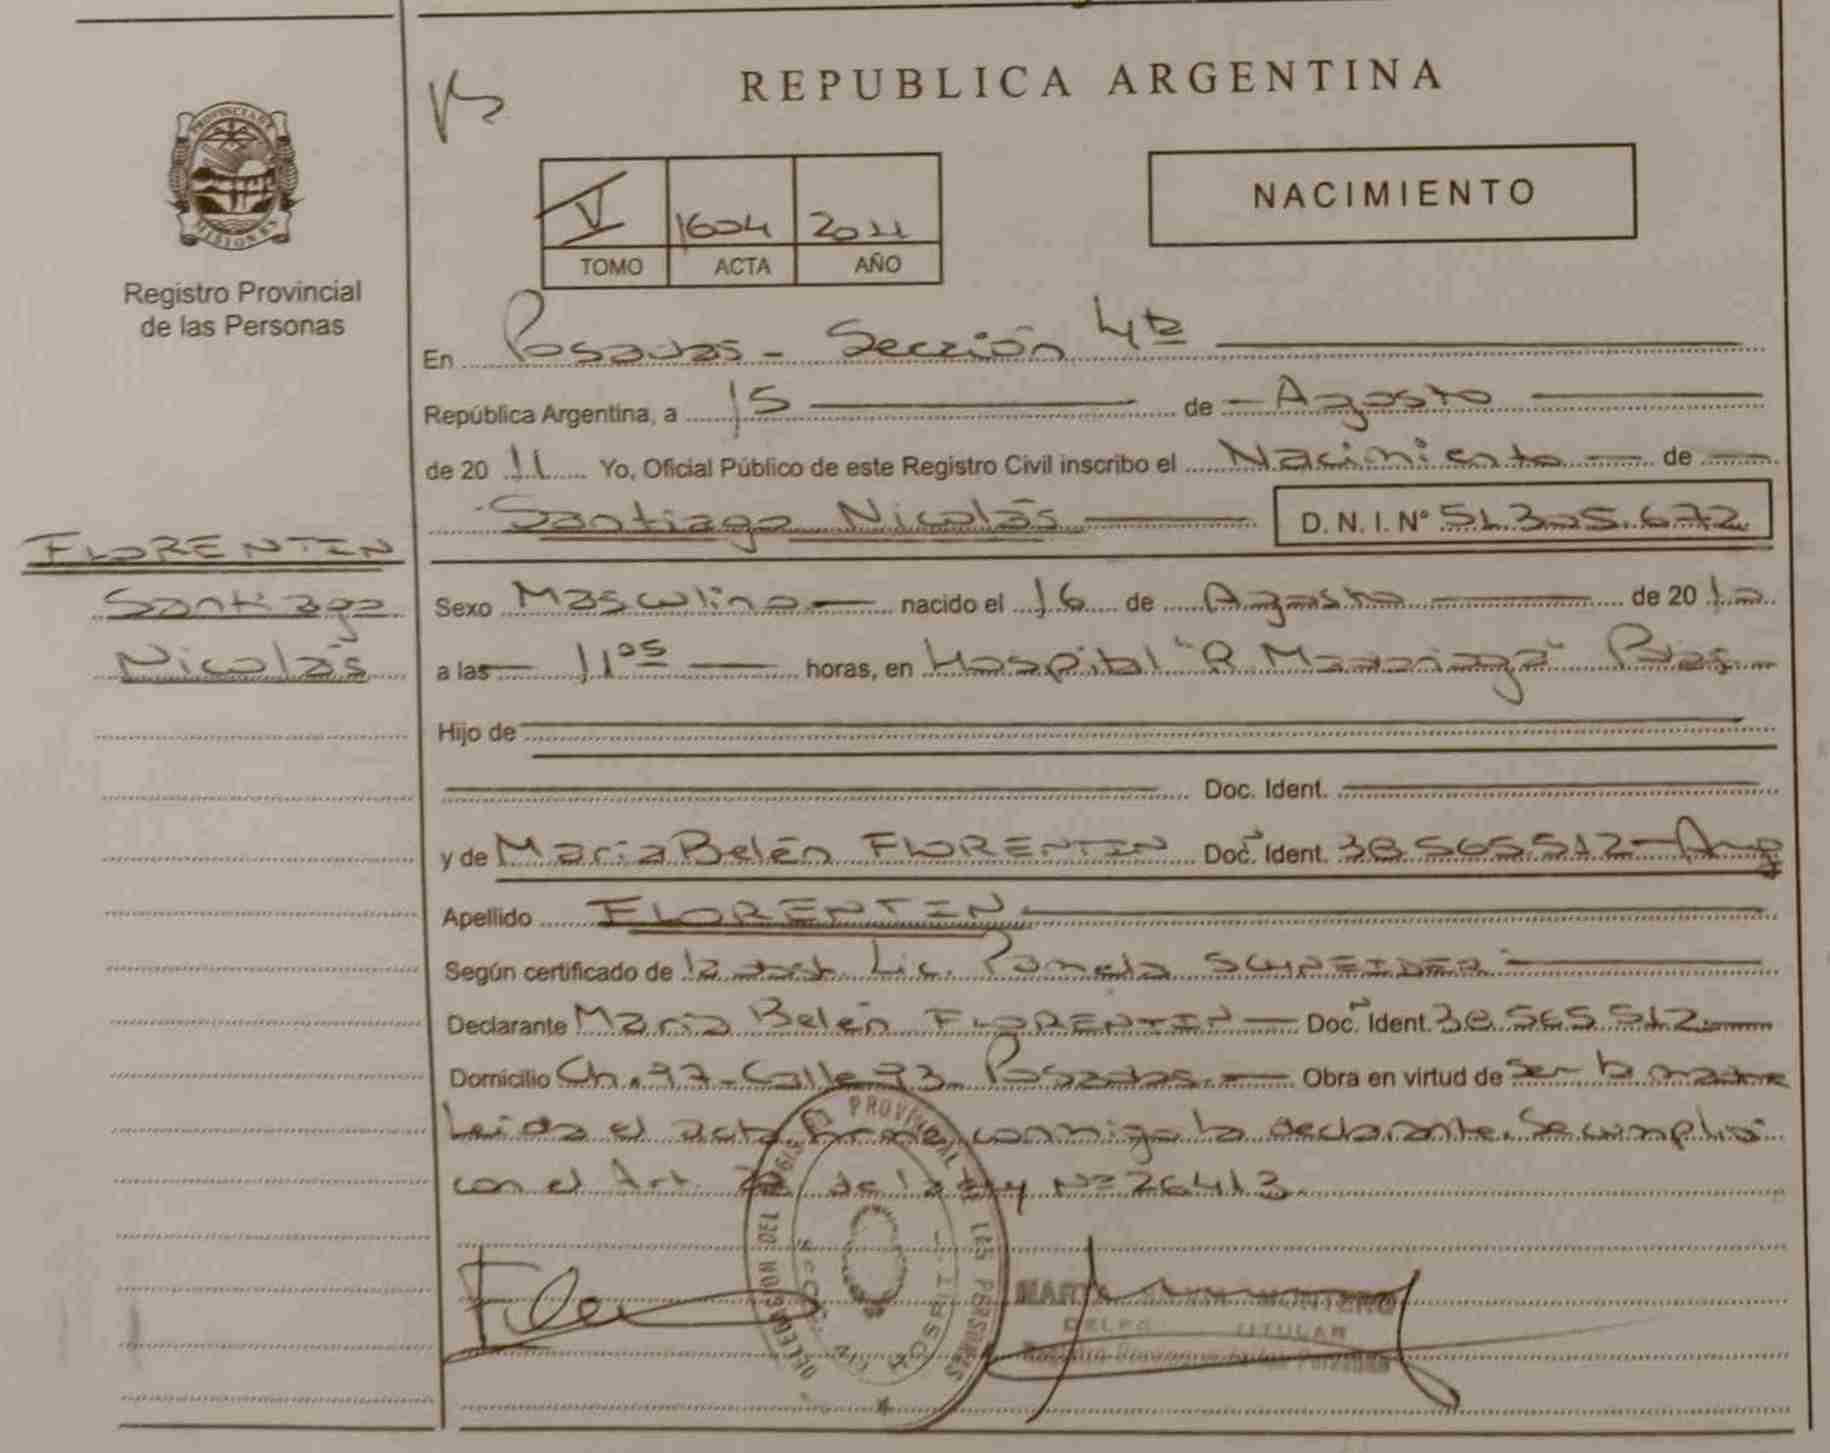 REPUBLICA ARGENTINA
PROVINCIA DE
MISIONES
Registro Provincial
de las Personas
NACIMIENTO
V 1604 2011
TOMO ACTA AÑO
En Posadas - Sección 4ta
República Argentina, a 15 de - Agosto
de 2011 Yo, Oficial Público de este Registro Civil inscribo el Nacimiento de
Santiago Nicolás D. N. I. Nº 51.305.672
FLORENTIN
Santiago
Nicolás
Sexo Masculino nacido el 16 de Agosto de 20
a las 11 05 horas, en Hospital "R Madariaga" Pdas
Hijo de
Doc. Ident.
y de María Belén FLORENTIN Doc. Ident. 38.565.512 - Arg
Apellido FLORENTIN
Según certificado de la Lic. Pamela
Declarante María Belén FLORENTIN Doc. Ident. 38.565.512
Domicilio Ch. Calle Posadas. Obra en virtud de ser la madre
Leída el acta firma conmigo la declarante. Se cumplió
con el Art. de la Ley Nº 26413.
DELEGACION DEL REGISTRO PROVINCIAL DE LES PERSONAS
MONTERO
TITULAR